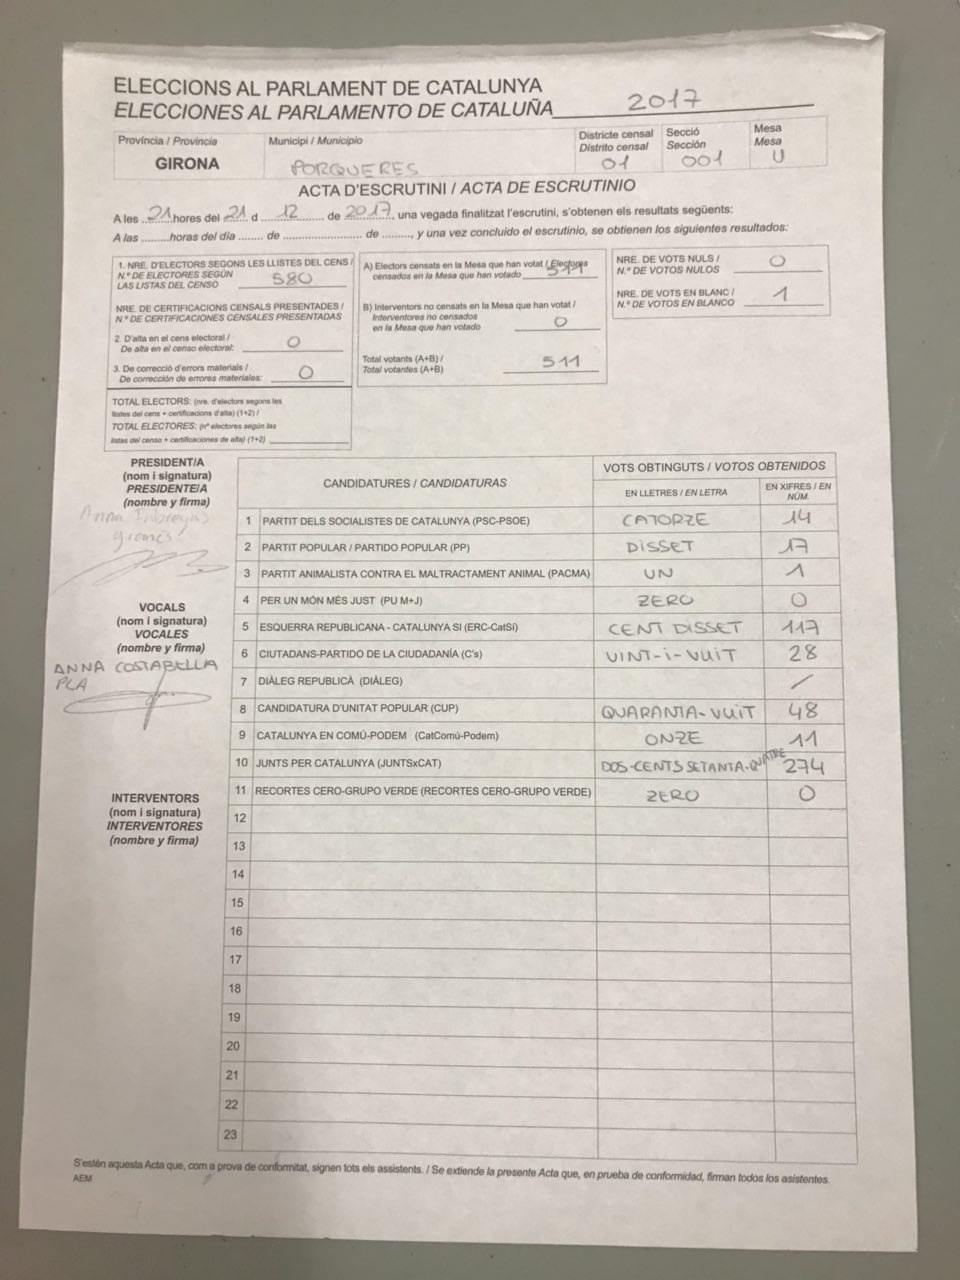 ELECCIONS AL PARLAMENT DE CATALUNYA
ELECCIONES AL PARLAMENTO DE CATALUÑA 2017
Província / Provincia
GIRONA
Municipi / Municipio
PORQUERES
Districte censal
Distrito censal
01
Secció
Sección
001
Mesa
Mesa
U
ACTA D'ESCRUTINI / ACTA DE ESCRUTINIO
A les 21 hores del 21 d 12 de 2017, una vegada finalitzat l'escrutini, s'obtenen els resultats següents:
A las ........horas del día ....... de ...................... de ......., y una vez concluido el escrutinio, se obtienen los siguientes resultados:
1. NRE. D'ELECTORS SEGONS LES LLISTES DEL CENS /
N.º DE ELECTORES SEGÚN
LAS LISTAS DEL CENSO 580
NRE. DE CERTIFICACIONS CENSALS PRESENTADES /
N.º DE CERTIFICACIONES CENSALES PRESENTADAS
2. D'alta en el cens electoral /
De alta en el censo electoral: 0
3. De correcció d'errors materials /
De corrección de errores materiales: 0
TOTAL ELECTORS: (nre. d'electors segons les
llistes del cens + certificacions d'alta) (1+2) /
TOTAL ELECTORES: (nº electores según las
listas del censo + certificaciones de alta) (1+2)
A) Electors censats en la Mesa que han votat / Electores
censados en la Mesa que han votado 511
B) Interventors no censats en la Mesa que han votat /
Interventores no censados
en la Mesa que han votado 0
Total votants (A+B) /
Total votantes (A+B) 511
NRE. DE VOTS NULS /
N.º DE VOTOS NULOS 0
NRE. DE VOTS EN BLANC /
N.º DE VOTOS EN BLANCO 1
PRESIDENT/A
(nom i signatura)
PRESIDENTE/A
(nombre y firma)
Anna
VOCALS
(nom i signatura)
VOCALES
(nombre y firma)
ANNA COSTABELLA
PLA
INTERVENTORS
(nom i signatura)
INTERVENTORES
(nombre y firma)
CANDIDATURES / CANDIDATURAS
VOTS OBTINGUTS / VOTOS OBTENIDOS
EN LLETRES / EN LETRA
EN XIFRES / EN NÚM.
1 PARTIT DELS SOCIALISTES DE CATALUNYA (PSC-PSOE) CATORZE 14
2 PARTIT POPULAR / PARTIDO POPULAR (PP) DISSET 17
3 PARTIT ANIMALISTA CONTRA EL MALTRACTAMENT ANIMAL (PACMA) UN 1
4 PER UN MÓN MÉS JUST (PU M+J) ZERO 0
5 ESQUERRA REPUBLICANA - CATALUNYA SI (ERC-CatSí) CENT DISSET 117
6 CIUTADANS-PARTIDO DE LA CIUDADANÍA (C's) VINT-i-VUIT 28
7 DIÀLEG REPUBLICÀ (DIÀLEG) /
8 CANDIDATURA D'UNITAT POPULAR (CUP) QUARANTA-VUIT 48
9 CATALUNYA EN COMÚ-PODEM (CatComú-Podem) ONZE 11
10 JUNTS PER CATALUNYA (JUNTSxCAT) DOS-CENTS SETANTA-QUATRE 274
11 RECORTES CERO-GRUPO VERDE (RECORTES CERO-GRUPO VERDE) ZERO 0
12
13
14
15
16
17
18
19
20
21
22
23
S'estén aquesta Acta que, com a prova de conformitat, signen tots els assistents. / Se extiende la presente Acta que, en prueba de conformidad, firman todos los asistentes.
AEM